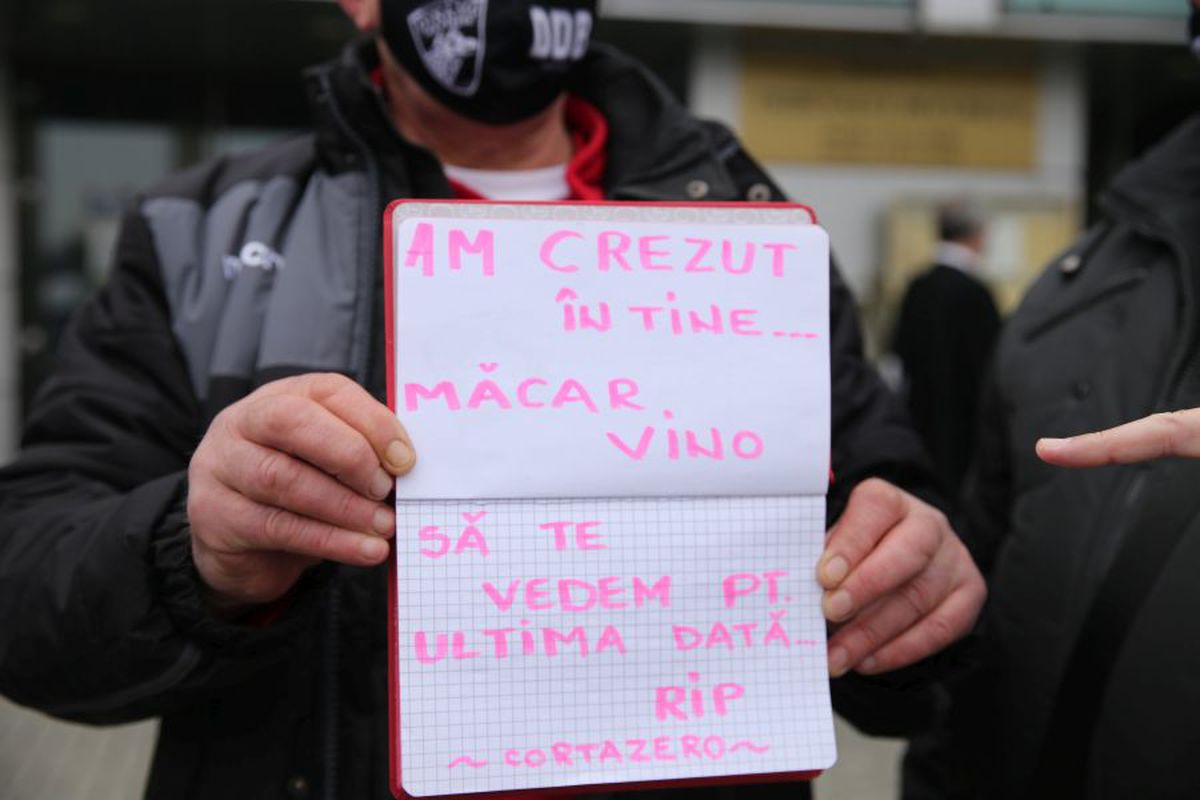 DDB
AM CREZUT
ÎN TINE...
MĂCAR
VINO
SĂ TE
VEDEM PT.
ULTIMA DATĂ...
RIP
~CORTAZERO~